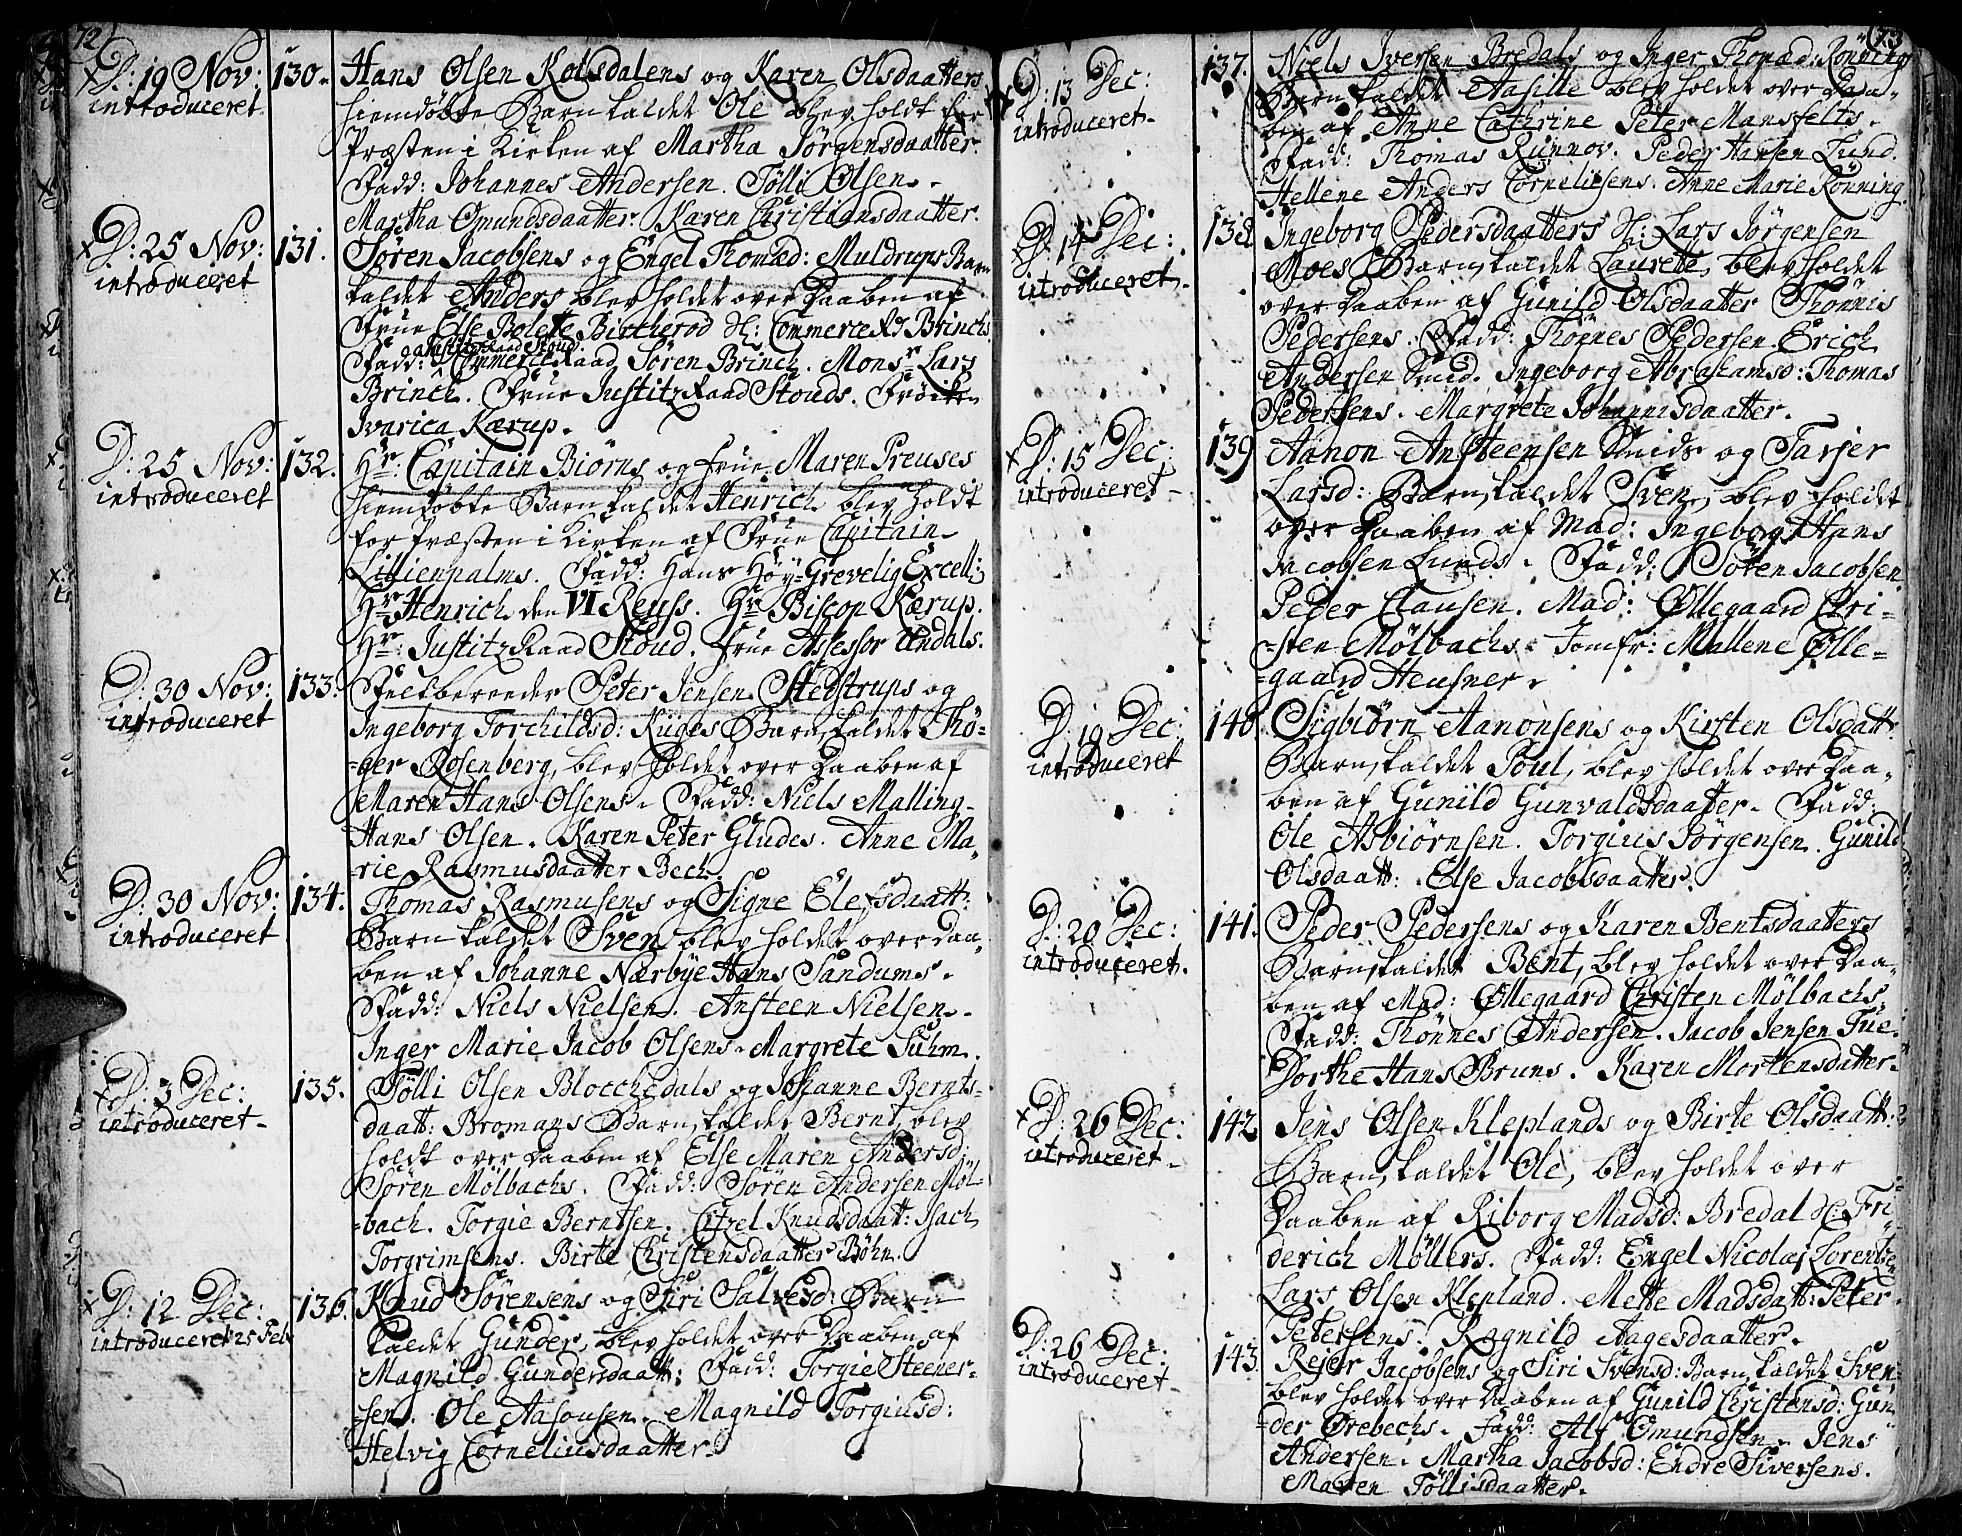 72
D: 19 Nov: 130. Hans Olsen Kolsdalens og Karen Olsdaatters
introduceret. hiemdøbte Barn kaldet Ole blev holdt for
Præsten i Kirken af Martha Jörgensdaatter.
Fadd: Johannes Andersen. Tölli Olsen.
Martha Omundsdaatter. Karen Christiansdaatter.
D: 25 Nov: 131. Sören Jacobsens og Engel Thomæd: Muldrups Barn
introduceret kaldet Anders blev holdet over Daaben af
Frue Else Bolette Bircherod Hr: CommerceRd Brinchs
Justitz Raad Stoud.
Fadd: CommerceRaad Sören Brinch. Monsr Lars
Brinch. Frue JustitzRaad Stouds. Fröiken
Ivarica Kærup.
D: 25 Nov: 132. Hr: Capitain Biörns og frue Maren Preuses
introduceret hiemdøbte Barn kaldet Henrich blev holdt
for Præsten i Kirken af Frue Capitain
Lillienpalms. Fadd: Hans Höy-Grevelig Excell:
Hr Henrich den VI Reuss. Hr Biscop Kærup.
Hr: JustitzRaad Stoud. frue Assessor Undals.
D: 30 Nov: 133. Feltbereeder Peter Jensen Stedstrups og
introduceret Ingeborg Torchildsd: Küges Barn kaldet Thö-
-ger Rosenberg, blev holdet over Daaben af
Maren Hans Olsens. Fadd: Niels Malling.
Hans Olsen. Karen Peter Gludes. Anne Ma-
-rie Rasmusdaatter Bech.
D: 30 Nov: 134. Thomas Rasmusens og Signe Elefsdaatt:
introduceret Barn kaldet Sven blev holdet over Daa-
ben af Johanne Nærbye Hans Sandums.
Fadd: Niels Nielsen. Ansteen Nielsen.
Inger Marie Jacob Olsens. Margrete Suhm.
D: 3 Dec: 135. Tölli Olsen Blocchedals og Johanne Bernts-
introduceret daatt: Bromans Barn, kaldet Bernt, blev
holdt over Daaben af Else Maren Andersd:
Sören Mölbachs. Fadd: Sören Andersen Möl-
-bach. Torgie Berntsen. Citzel Knudsdaatt: Isach
Torgrimsens. Birte Christensdaatter Böhn.
D: 12 Dec: 136. Knud Sörensens og Siri Salvesd: Barn
introduceret 25 Feb kaldet Gunder, blev holdet over Daaben af
Magnild Gundersdaatt: Fadd: Torgie Steener-
-sen. Ole Aasousen. Magnild Torgiusd:
Helvig Corneliusdaatter.
73
D: 13 Dec: 137. Niels Iversen Bredals og Inger Thomæd: Rönning
introduceret. Barn kaldet Aasille blev holdet over Daa-
ben af Anne Cathrine Peter Mansfelts.
Fadd: Thomas Runnov. Peder Hansen Lund.
Hellene Anders Corneliusens. Anne Marie Rönning.
D: 14 Dec: 138. Ingeborg Pedersdaatters Hr: Lars Jörgensen
introduceret. Moes Barn, kaldet Laurete, blev holdet
over Daaben af Gunild Olsdaatter Thönnis
Pedersens. Fadd: Thönnes Pedersen. Erich
Andersen Smid. Ingeborg Abrahamsd: Thomas
Pedersens. Margrete Johannisdaatter.
D: 15 Dec: 139 Aanon Ansteensen Smids og Tarjer
introduceret Larsd: Barn, kaldet Sven, blev holdet
over Daaben af Mad: Ingeborg Hans
Jacobsen Lunds. Fadd: Sören Jacobsen
Peder Clausen. Mad: Øllegaard Chri-
-sten Mölbachs. Jomfr: Mallene Ølle-
-gaard Heusner.
D: 19 Dec: 140 Sigbiörn Aanonsens og Kirsten Olsdatt:
introduceret Barn, kaldet Poul, blev holdet over Daa-
ben af Gunild Gunvaldsdaatter. Fadd:
Ole Asbiörnsen. Torgius Jörgensen. Gunild
Olsdaatt: Else Jacobsdaatter.
D: 20 Dec: 141. Peder Pedersens og Karen Bentsdaatters
introduceret. Barn, kaldet Bent, blev holdet over Daa-
ben af Mad: Øllegaard Christen Mölbachs.
Fadd: Thönnes Andersen. Jacob Jensen Tue.
Dorthe Hans Bruns. Karen Mortensdatter.
D: 26 Dec: 142 Jens Olsen Kleplands og Birte Olsdaatt:
introduceret. Barn, kaldet Ole, blev holdet over
Daaben af Riborg Madsd: Bredal Hr: Fri-
derich Möllers. Fadd: Engel Nicolai Lorentzen
Lars Olsen Klepland. Mette Madsdatt: Peter
Petersens. Ragnild Aagesdaatter.
D: 26 Dec: 143. Rejer Jacobsens og Siri Svensd: Barn, kaldet Sven
introduceret. blev holdet over Daaben af Gunild Christensd: Gun-
-der Ørebechs. Fadd: Alf Omundsen. Jens
Andersen. Martha Jacobsd: Endre Siversens.
Maren Töllisdaatter.